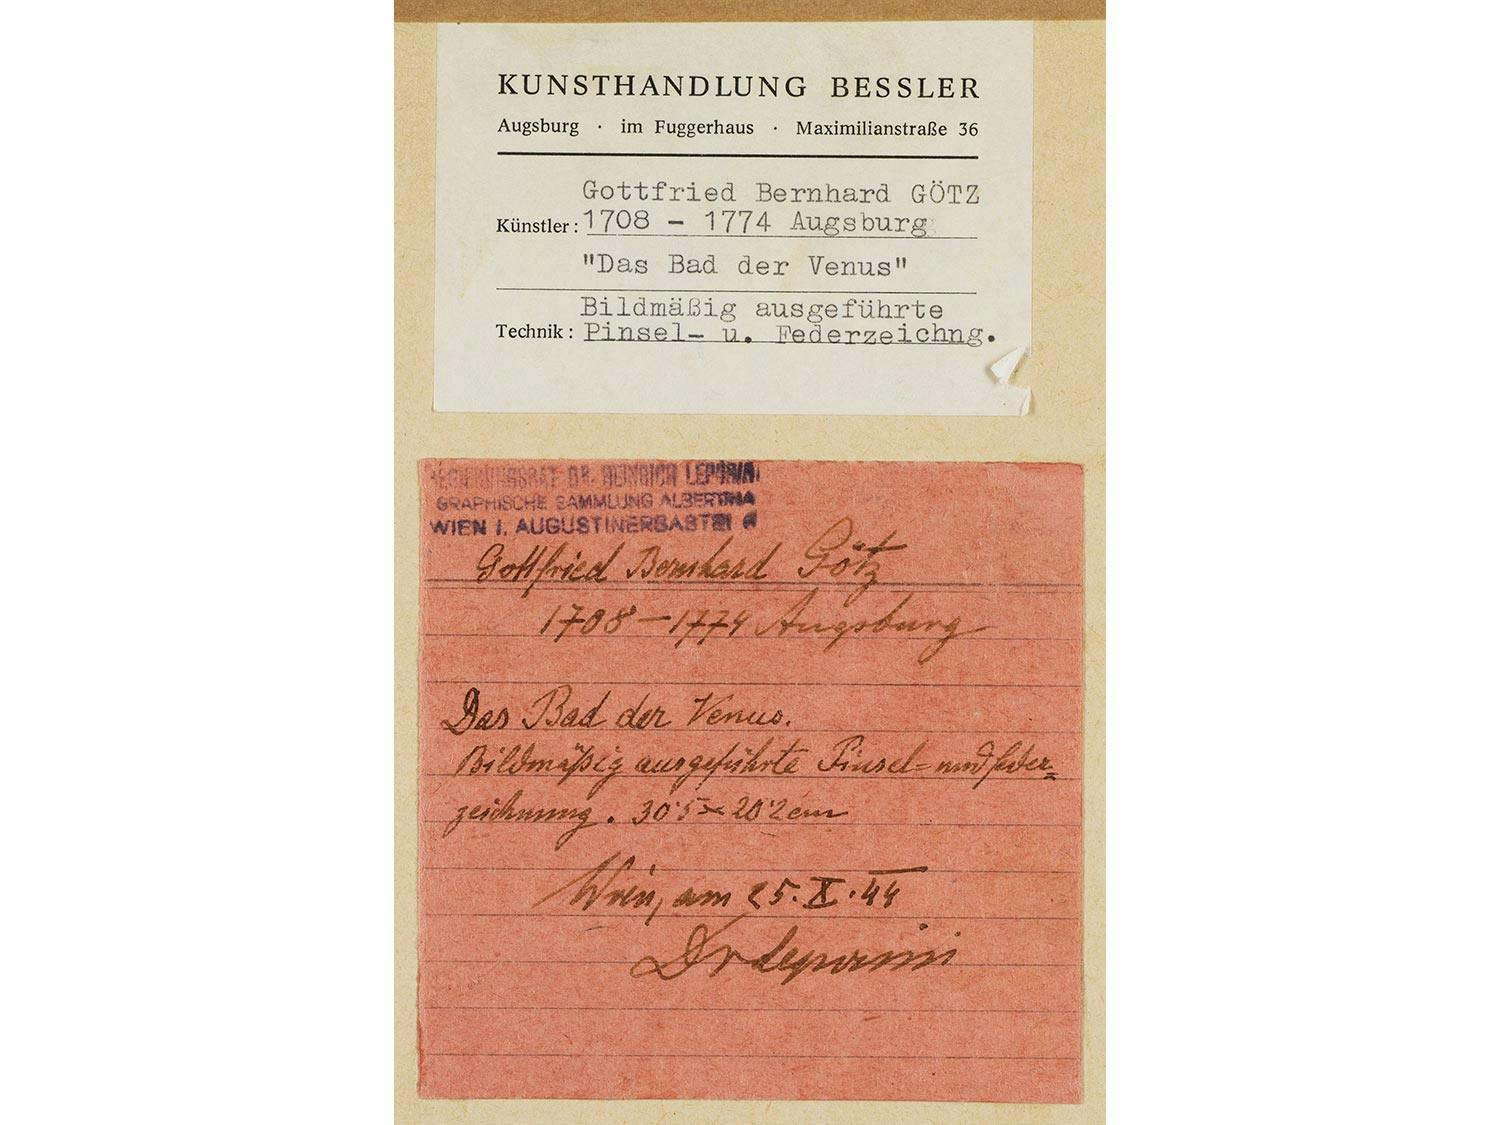 KUNSTHANDLUNG BESSLER
Augsburg · im Fuggerhaus · Maximilianstraße 36
Gottfried Bernhard GÖTZ
Künstler: 1708 - 1774 Augsburg
"Das Bad der Venus"
Bildmäßig ausgeführte
Technik: Pinsel- u. Federzeichng.
REGIERUNGSRAT DR. HEINRICH LEPORINI
GRAPHISCHE SAMMLUNG ALBERTINA
WIEN I. AUGUSTINERBASTEI 6
Gottfried Bernhard Götz
1708 – 1774 Augsburg
Das Bad der Venus.
Bildmäßig ausgeführte Pinsel= und Feder=
zeichnung. 30˙5 × 20˙2 cm
Wien, am 25. X. 44
Dr Leporini